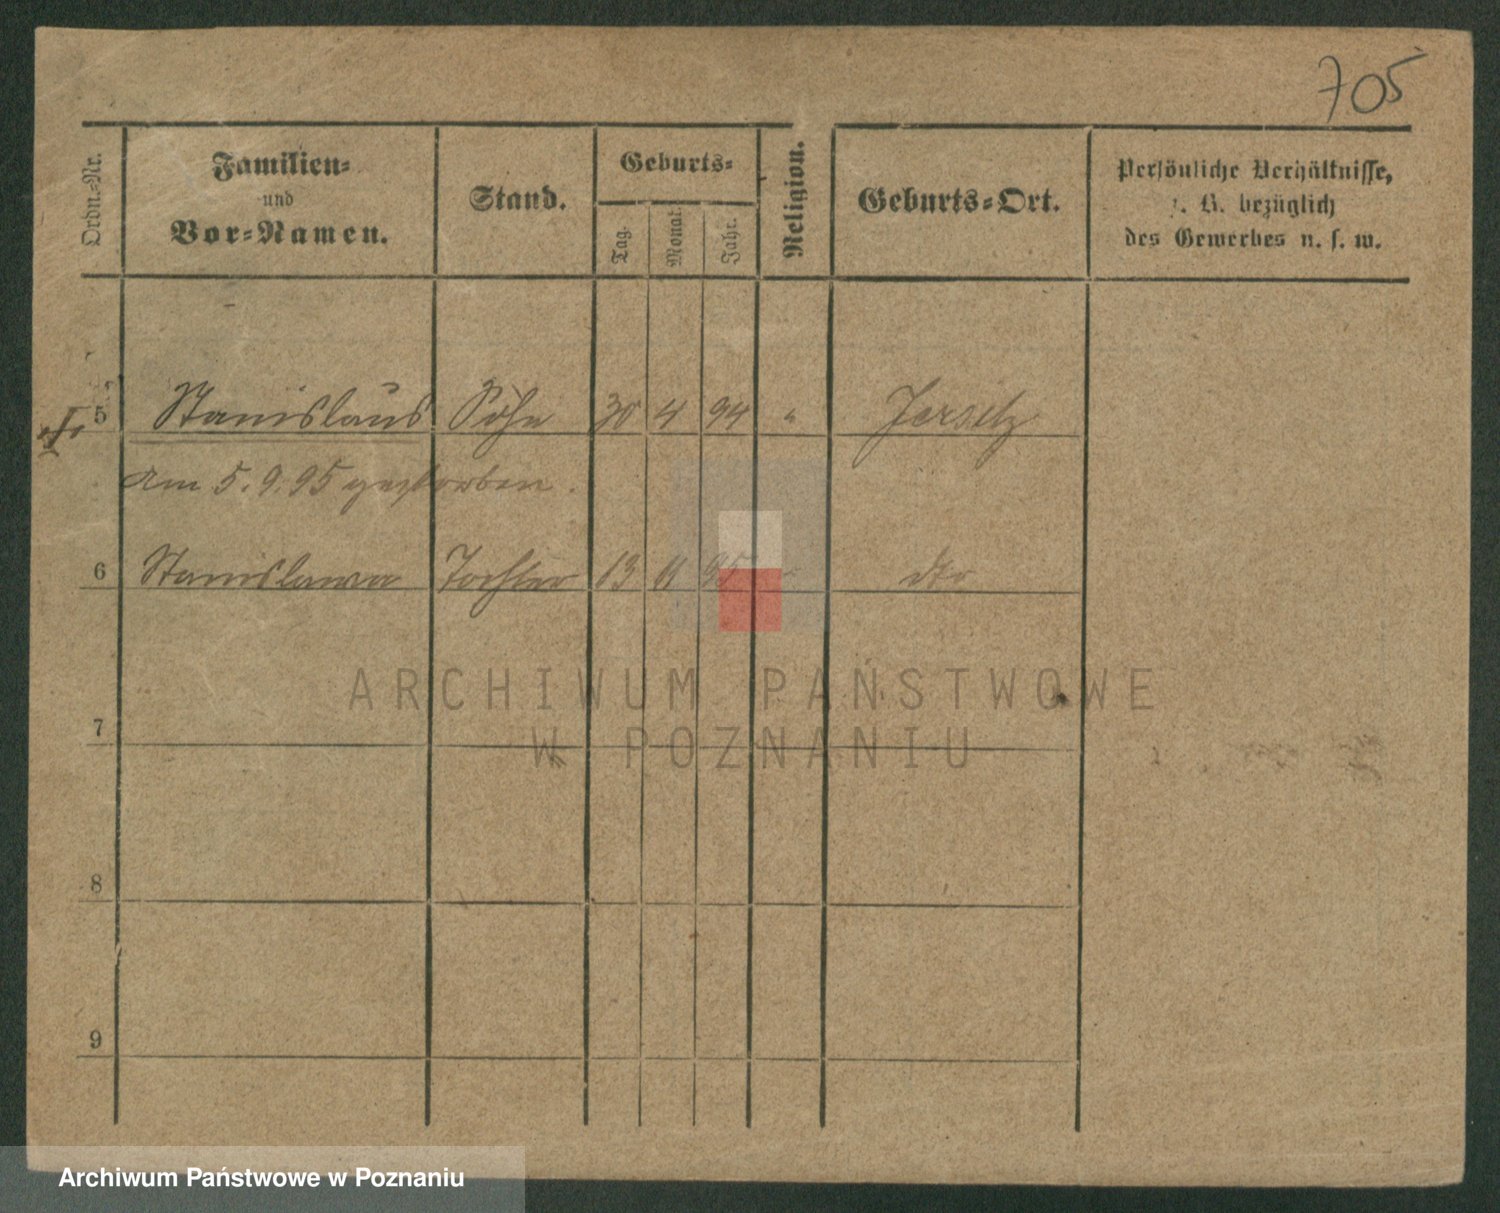 705
Ordn.-Nr.
Familien-
und
Vor-Namen.
Stand.
Geburts-
Tag.
Monat.
Jahr.
Religion.
Geburts-Ort.
Persönliche Verhältnisse,
z. B. bezüglich
des Gewerbes u. s. w.
5 Stanislaus Sohn 30 4 94 " Jersitz
am 5. 9. 95 gestorben.
6 Stanislawa Tochter 13 11 95 dto
ARCHIWUM PAŃSTWOWE
W POZNANIU
7
8
9
Archiwum Państwowe w Poznaniu